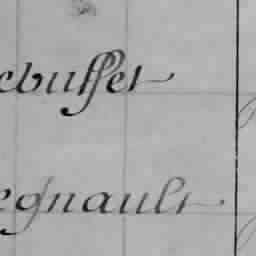 ebuffet
egnault